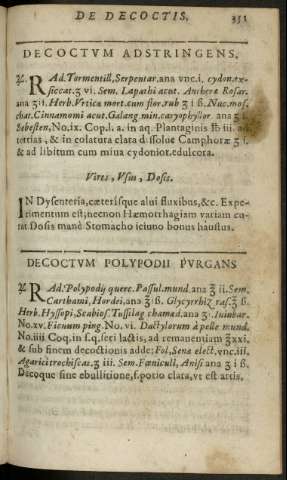 DE DECOCTIS. 351
DECOCTVM ADSTRINGENS.
℞. RAd. Tormentill, Serpentar. ana vnc. i. cydon. ex-
siccat. ʒ vi. Sem. Lapathi acut. Antheræ Rosar.
ana ʒ ii. Herb. Vrticæ mort. cum flor. rub ʒ i ß. Nuc. mos.
char. Cinnamomi acut. Galang. min. caryophyllor. ana ʒ i.
Sebesten, No. ix. Coq. l. a. in aq. Plantaginis ℔ iii. ad
tertias, & in colatura clara dissolue Camphoræ ʒ i.
& ad libitum cum miua cydonior. edulcora.
Vires, Vsus, Dosis.
IN Dysenteria, cæterisque alui fluxibus, &c. Expe-
rimentum est, necnon Hæmorrhagiam variam cu-
rat Dosis manè Stomacho ieiuno bonus haustus.
DECOCTVM POLYPODII PVRGANS
℞. RAd. Polypodij querc. Passul. mund. ana ʒ ii. Sem.
Carthami, Hordei, ana ʒ. ß. Glycyrrhiz. ras. ʒ ß.
Herb. Hyssopi, Scabios. Tussilag chamæd. ana ʒ. Iuiubar.
No. xv. Ficuum ping. No. vi. Dactylorum à pelle mund.
No. iiii Coq. in s.q. seri lactis, ad remanentiam ℥xxi,
& sub finem decoctionis adde; Fol. Senæ elect, vnc. iii.
Agarici trochiscat. ʒ iii. Sem. Fœniculi, Anisi ana ʒ i ß.
Decoque sine ebullitione, f. potio clara, vt est artis.